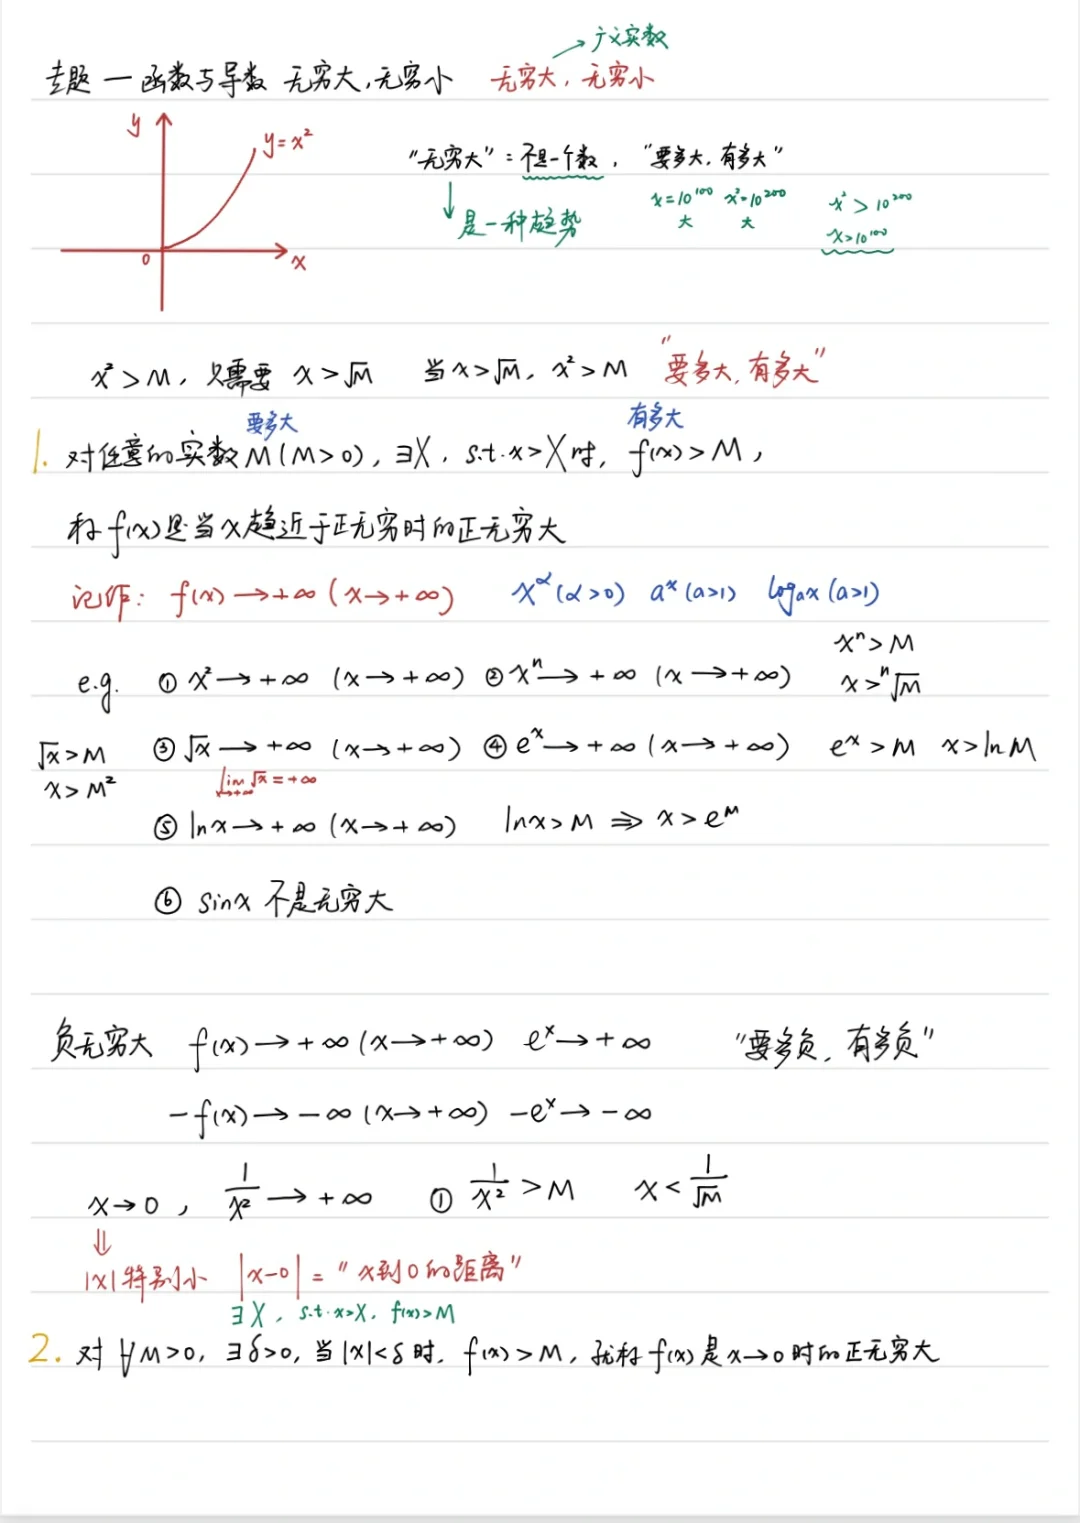 广义实数
专题一 函数与导数 无穷大,无穷小 无穷大,无穷小
y
y=x²
0
x
"无穷大":不是一个数,"要多大,有多大"
是一种趋势
x=10¹⁰⁰ x²=10²⁰⁰
大 大
x²>10²⁰⁰
x>10¹⁰⁰
x²>M, 只需要 x>√M 当x>√M, x²>M "要多大,有多大"
要多大 有多大
1. 对任意的实数M(M>0), ∃X, s.t. x>X时, f(x)>M,
称f(x)是当x趋近于正无穷时的正无穷大
记作: f(x)→+∞(x→+∞) x^α(α>0) aˣ(a>1) logₐx(a>1)
xⁿ>M
e.g. ① x²→+∞ (x→+∞) ② xⁿ→+∞ (x→+∞) x>ⁿ√M
√x>M ③ √x→+∞ (x→+∞) ④ eˣ→+∞(x→+∞) eˣ>M x>lnM
x>M² lim x→+∞ √x=+∞
⑤ lnx→+∞(x→+∞) lnx>M ⇒ x>e^M
⑥ sinx 不是无穷大
负无穷大 f(x)→+∞(x→+∞) eˣ→+∞ "要多负,有多负"
-f(x)→-∞(x→+∞) -eˣ→-∞
x→0, 1/x²→+∞ ① 1/x²>M x<1/√M
⇓
|x|特别小 |x-0|="x到0的距离"
∃X, s.t. x>X, f(x)>M
2. 对∀M>0, ∃δ>0, 当|x|<δ时, f(x)>M, 就称f(x)是x→0时的正无穷大